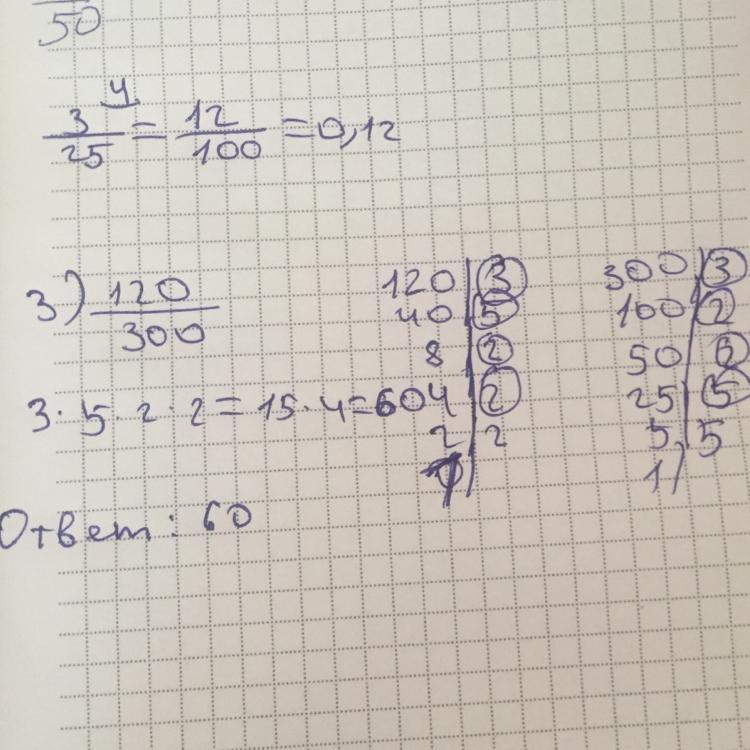 50
3/25 ⁴ = 12/100 = 0,12
3) 120/300
3 · 5 · 2 · 2 = 15 · 4 = 60
Ответ: 60
120 | 3
40 | 5
8 | 2
4 | 2
2 | 2
1
300 | 3
100 | 2
50 | 2
25 | 5
5 | 5
1 |